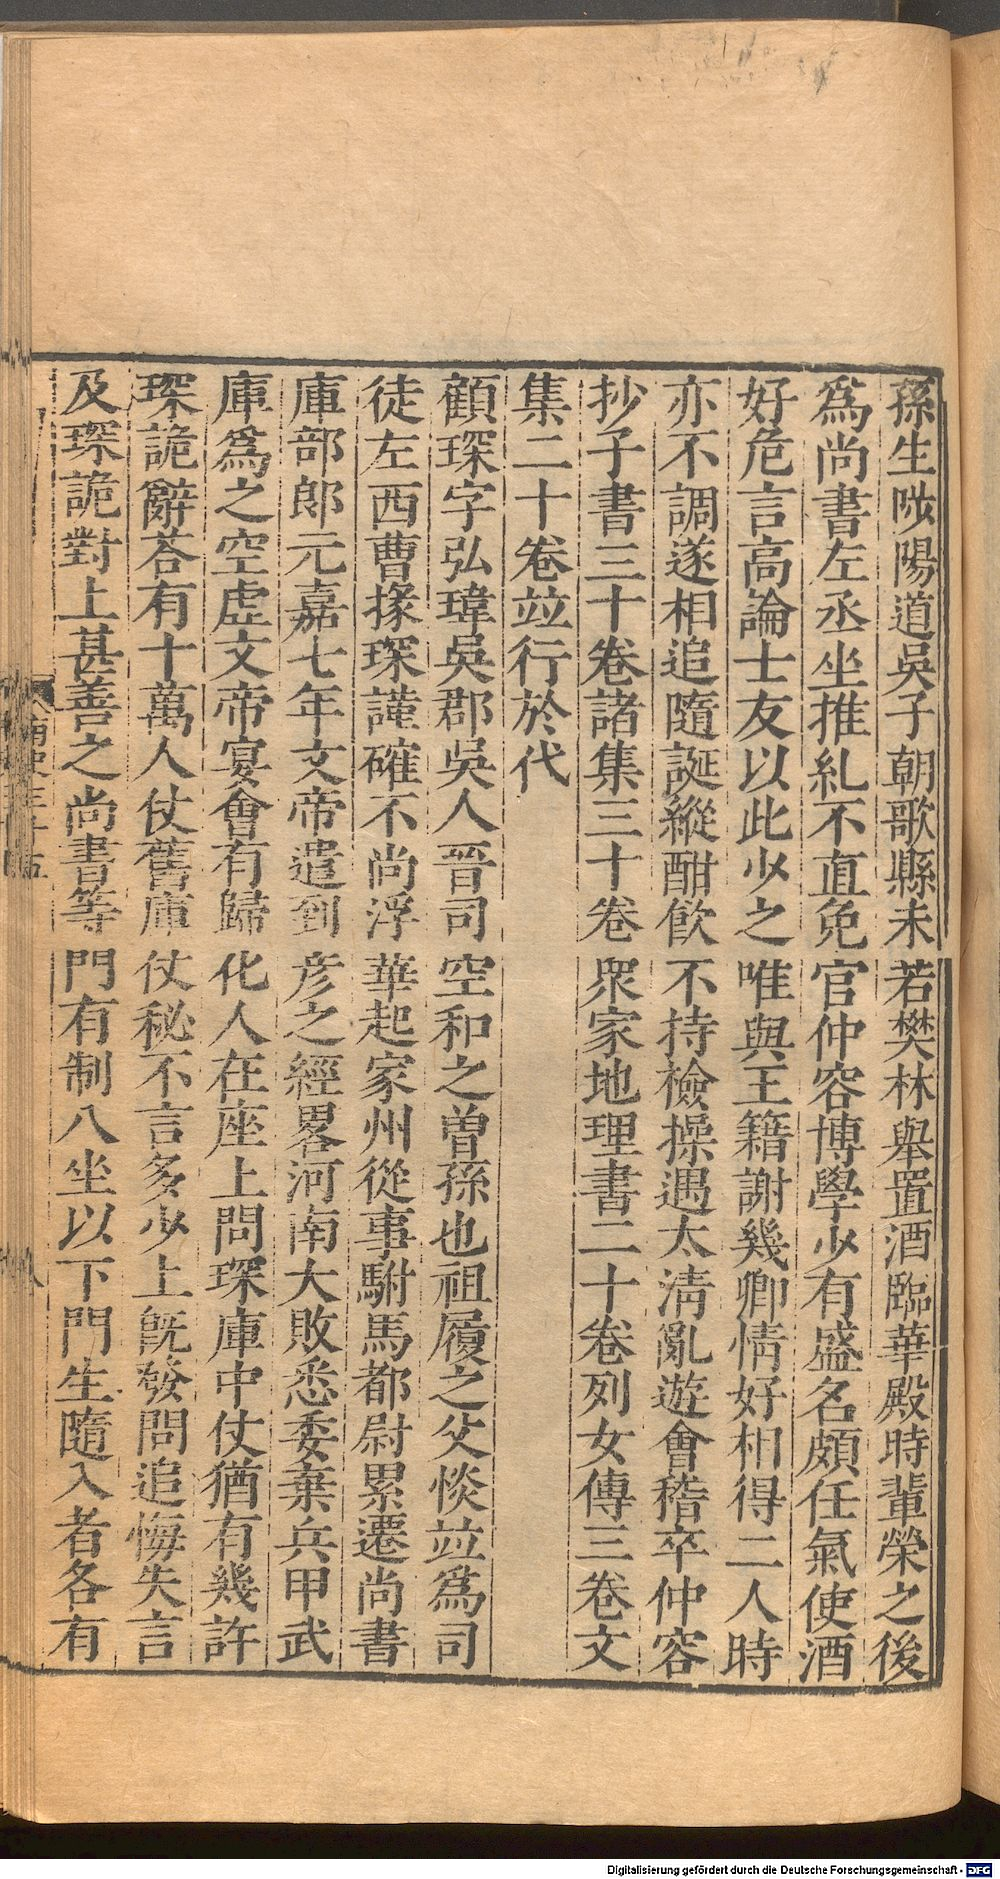 孫生吷陽道吳子朝歌縣未若樊林舉置酒臨華殿時輩榮之後
爲尚書左丞坐推糺不直免官仲容博學少有盛名頗任氣使酒
好危言高論士友以此少之唯與王籍謝幾卿情好相得二人時
亦不調遂相追隨誕縱酣飲不持檢操遇太淸亂遊會稽卒仲容
抄子書三十卷諸集三十卷衆家地理書二十卷列女傳三卷文
集二十卷竝行於代
顧琛字弘瑋吳郡吳人晉司空和之曾孫也祖履之父惔竝爲司
徒左西曹掾琛謹確不尚浮華起家州從事駙馬都尉累遷尚書
庫部郎元嘉七年文帝遣到彥之經畧河南大敗悉委棄兵甲武
庫爲之空虛文帝宴會有歸化人在座上問琛庫中仗猶有幾許
琛詭辭荅有十萬人仗舊庫仗秘不言多少上旣發問追悔失言
及琛詭對上甚善之尚書等門有制八坐以下門生隨入者各有
八
Digitalisierung gefördert durch die Deutsche Forschungsgemeinschaft - DFG